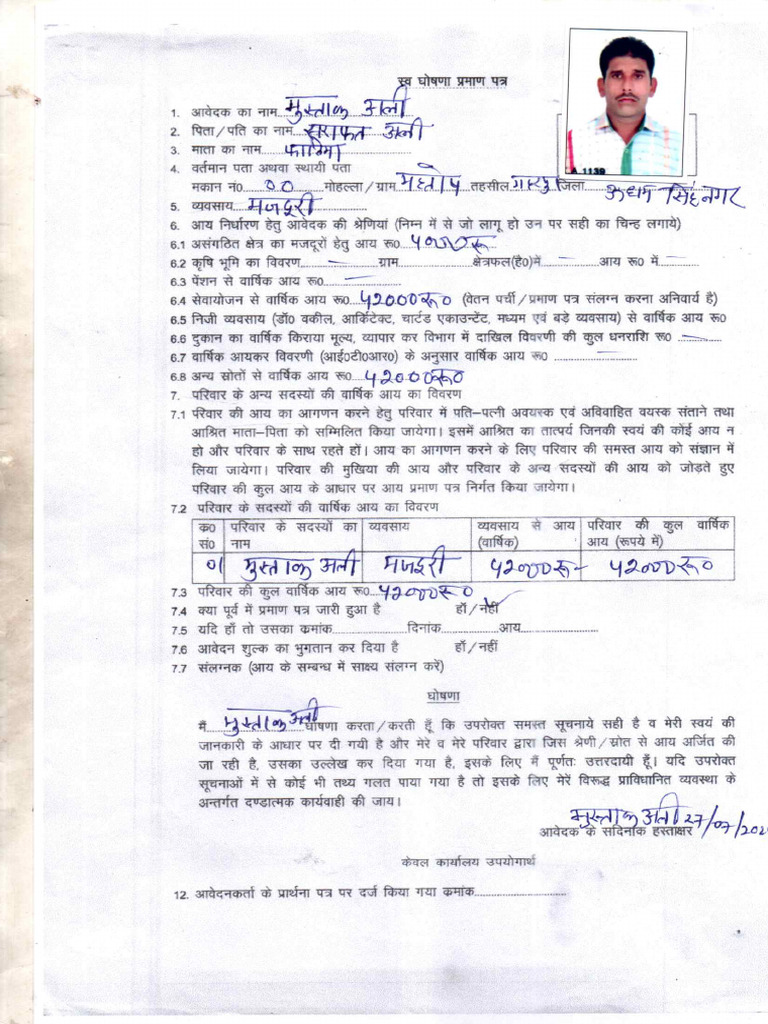 स्व घोषणा प्रमाण पत्र
A 1139
1. आवेदक का नाम मुस्ताक अली
2. पिता/पति का नाम सराफत अली
3. माता का नाम फातिमा
4. वर्तमान पता अथवा स्थायी पता
मकान नं० 00 मोहल्ला/ग्राम तहसील जिला ऊधम सिंह नगर
5. व्यवसाय मजदूरी
6. आय निर्धारण हेतु आवेदक की श्रेणियां (निम्न में से जो लागू हो उन पर सही का चिन्ह लगाये)
6.1 असंगठित क्षेत्र का मजदूरों हेतु आय रू0
6.2 कृषि भूमि का विवरण — ग्राम क्षेत्रफल(है0)में — आय रू0 में —
6.3 पेंशन से वार्षिक आय रू0 —
6.4 सेवायोजन से वार्षिक आय रू0 42000रू0 (वेतन पर्ची/प्रमाण पत्र संलग्न करना अनिवार्य है)
6.5 निजी व्यवसाय (डॉ0 वकील, आर्किटेक्ट, चार्टड एकाउन्टेंट, मध्यम एवं बड़े व्यवसाय) से वार्षिक आय रू0
6.6 दुकान का वार्षिक किराया मूल्य, व्यापार कर विभाग में दाखिल विवरणी की कुल धनराशि रू0 —
6.7 वार्षिक आयकर विवरणी (आई0टी0आर0) के अनुसार वार्षिक आय रू0 —
6.8 अन्य स्रोतों से वार्षिक आय रू0 42000रू0
7. परिवार के अन्य सदस्यों की वार्षिक आय का विवरण
7.1 परिवार की आय का आगणन करने हेतु परिवार में पति-पत्नी अवयस्क एवं अविवाहित वयस्क संताने तथा
आश्रित माता-पिता को सम्मिलित किया जायेगा। इसमें आश्रित का तात्पर्य जिनकी स्वयं की कोई आय न
हो और परिवार के साथ रहते हों। आय का आगणन करने के लिए परिवार की समस्त आय को संज्ञान में
लिया जायेगा। परिवार की मुखिया की आय और परिवार के अन्य सदस्यों की आय को जोड़ते हुए
परिवार की कुल आय के आधार पर आय प्रमाण पत्र निर्गत किया जायेगा।
7.2 परिवार के सदस्यों की वार्षिक आय का विवरण
क0 परिवार के सदस्यों का व्यवसाय व्यवसाय से आय परिवार की कुल वार्षिक
सं0 नाम (वार्षिक) आय (रूपये में)
01 मुस्ताक अली मजदूरी 42000रू- 42000रू0
7.3 परिवार की कुल वार्षिक आय रू0 42000रू0
7.4 क्या पूर्व में प्रमाण पत्र जारी हुआ है हाँ/नहीं
7.5 यदि हाँ तो उसका क्रमांक दिनांक आय
7.6 आवेदन शुल्क का भुगतान कर दिया है हाँ/नहीं
7.7 संलग्नक (आय के सम्बन्ध में साक्ष्य संलग्न करें)
घोषणा
मैं मुस्ताक अली घोषणा करता/करती हूँ कि उपरोक्त समस्त सूचनाये सही है व मेरी स्वयं की
जानकारी के आधार पर दी गयी है और मेरे व मेरे परिवार द्वारा जिस श्रेणी/स्रोत से आय अर्जित की
जा रही है, उसका उल्लेख कर दिया गया है, इसके लिए मैं पूर्णतः उत्तरदायी हूँ। यदि उपरोक्त
सूचनाओं में से कोई भी तथ्य गलत पाया गया है तो इसके लिए मेरें विरूद्ध प्राविधानित व्यवस्था के
अन्तर्गत दण्डात्मक कार्यवाही की जाय।
मुस्ताक अली 27/07/202
आवेदक के सदिनांक हस्ताक्षर
केवल कार्यालय उपयोगार्थ
12. आवेदनकर्ता के प्रार्थना पत्र पर दर्ज किया गया क्रमांक